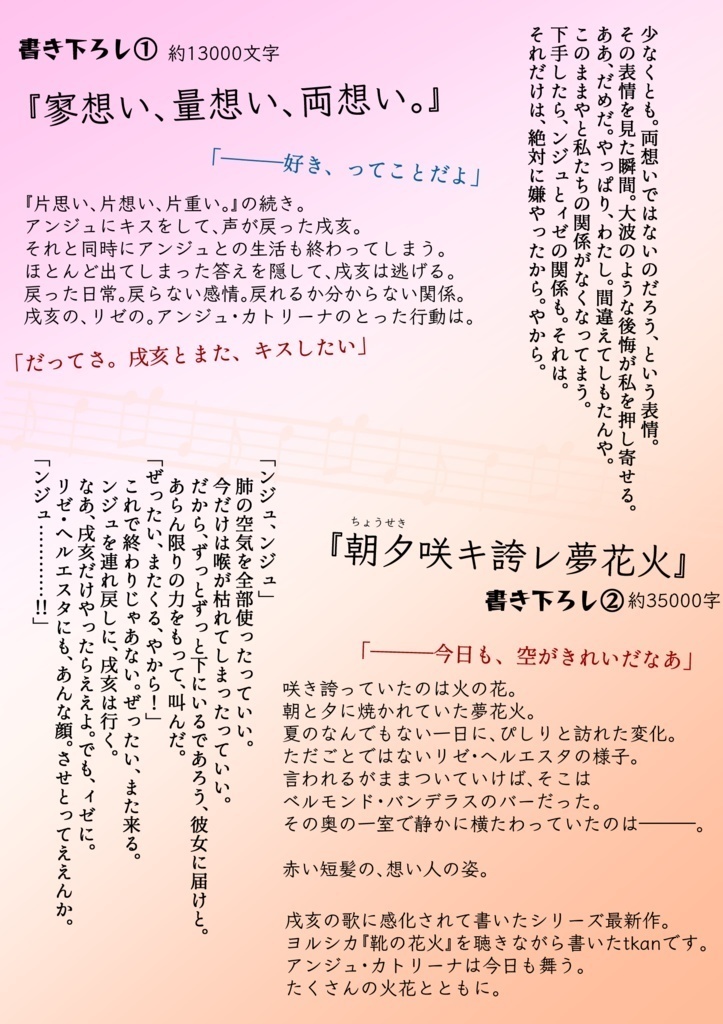 書き下ろし① 約13000文字
『寥想い、量想い、両想い。』
「―――好き、ってことだよ」
『片思い、片想い、片重い。』の続き。
アンジュにキスをして、声が戻った戌亥。
それと同時にアンジュとの生活も終わってしまう。
ほとんど出てしまった答えを隠して、戌亥は逃げる。
戻った日常。戻らない感情。戻れるか分からない関係。
戌亥の、リゼの。アンジュ・カトリーナのとった行動は。
「だってさ。戌亥とまた、キスしたい」
少なくとも。両想いではないのだろう、という表情。
その表情を見た瞬間。大波のような後悔が私を押し寄せる。
ああ、だめだ。やっぱり、わたし。間違えてしもたんや。
このままやと私たちの関係がなくなってまう。
下手したら、ンジュとィゼの関係も。それは。
それだけは、絶対に嫌やったから。やから。
『朝夕咲キ誇レ夢花火』
ちょうせき
書き下ろし② 約35000字
「―――今日も、空がきれいだなあ」
咲き誇っていたのは火の花。
朝と夕に焼かれていた夢花火。
夏のなんでもない一日に、ぴしりと訪れた変化。
ただごとではないリゼ・ヘルエスタの様子。
言われるがままついていけば、そこは
ベルモンド・バンデラスのバーだった。
その奥の一室で静かに横たわっていたのは―――。
赤い短髪の、想い人の姿。
戌亥の歌に感化されて書いたシリーズ最新作。
ヨルシカ『靴の花火』を聴きながら書いたtkanです。
アンジュ・カトリーナは今日も舞う。
たくさんの火花とともに。
「ンジュ、ンジュ」
肺の空気を全部使ったっていい。
今だけは喉が枯れてしまったっていい。
だから、ずっとずっと下にいるであろう、彼女に届けと。
あらん限りの力をもって、叫んだ。
「ぜったい、またくる、やから！」
これで終わりじゃあない。ぜったい、また来る。
ンジュを連れ戻しに、戌亥は行く。
なあ、戌亥だけやったらええよ。でも、ィゼに。
リゼ・ヘルエスタにも、あんな顔。させとってええんか。
「ンジュ…………!!」